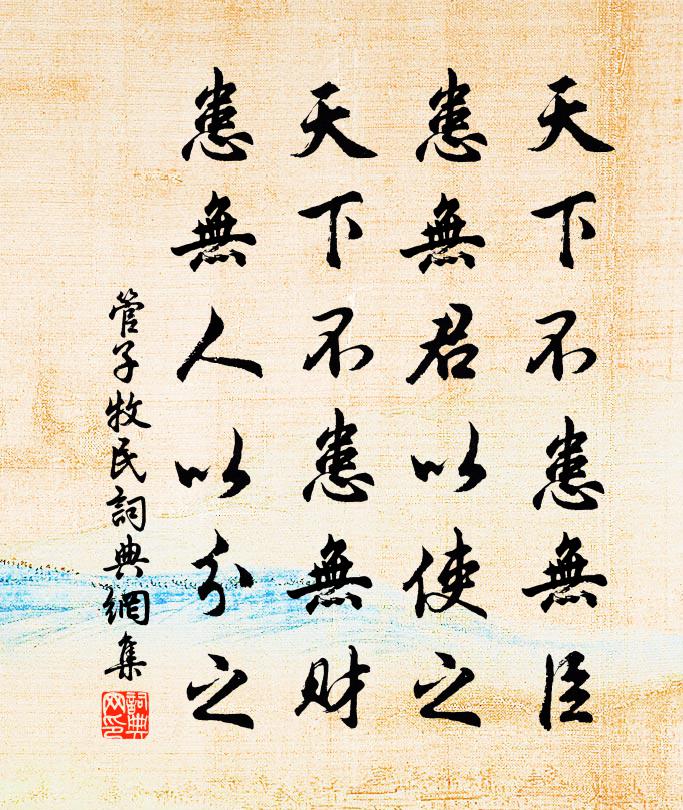 天下不患無臣
患無君以使之
天下不患無財
患無人以分之
管子牧民詞典網集
詞典
网印